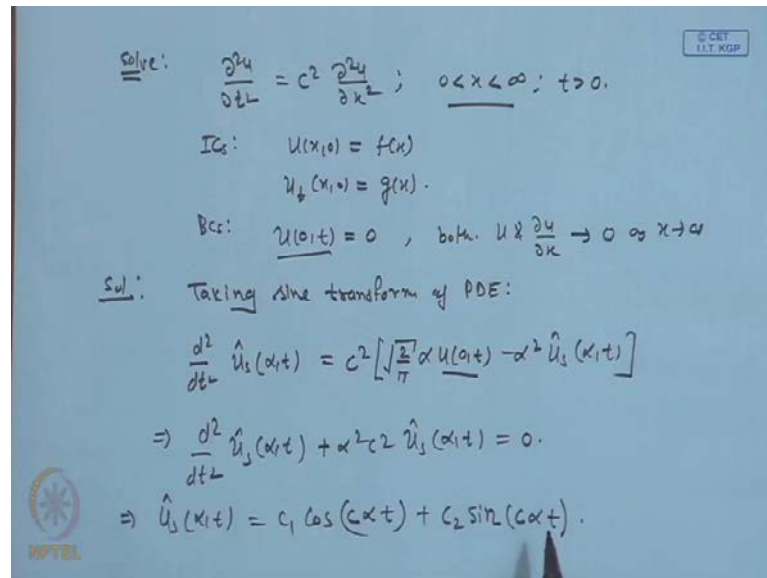 © CET
I.I.T. KGP
Solve: ∂²u/∂t² = c² ∂²u/∂x² ; 0<x<∞ ; t>0.
ICs: u(x,0) = f(x)
u_t (x,0) = g(x).
BCs: u(0,t) = 0 , both u & ∂u/∂x → 0 as x→∞
Sol: Taking sine transform of PDE:
d²/dt² û_s(α,t) = c² [√(2/π) α u(0,t) − α² û_s(α,t)]
⇒ d²/dt² û_s(α,t) + α² c² û_s(α,t) = 0.
⇒ û_s(α,t) = c₁ cos(cαt) + c₂ sin(cαt).
NPTEL